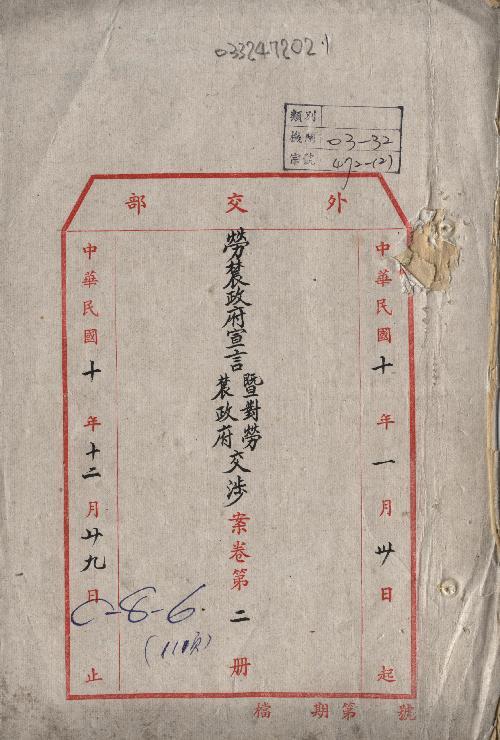 033247202·1
類別
機關 03-32
宗號 472-(2)
外交部
中華民國十年一月廿日起
勞農政府宣言暨對勞農政府交涉案卷第二册
中華民國十年十二月廿九日止
C-8-6
(111頁)
檔 期第 號